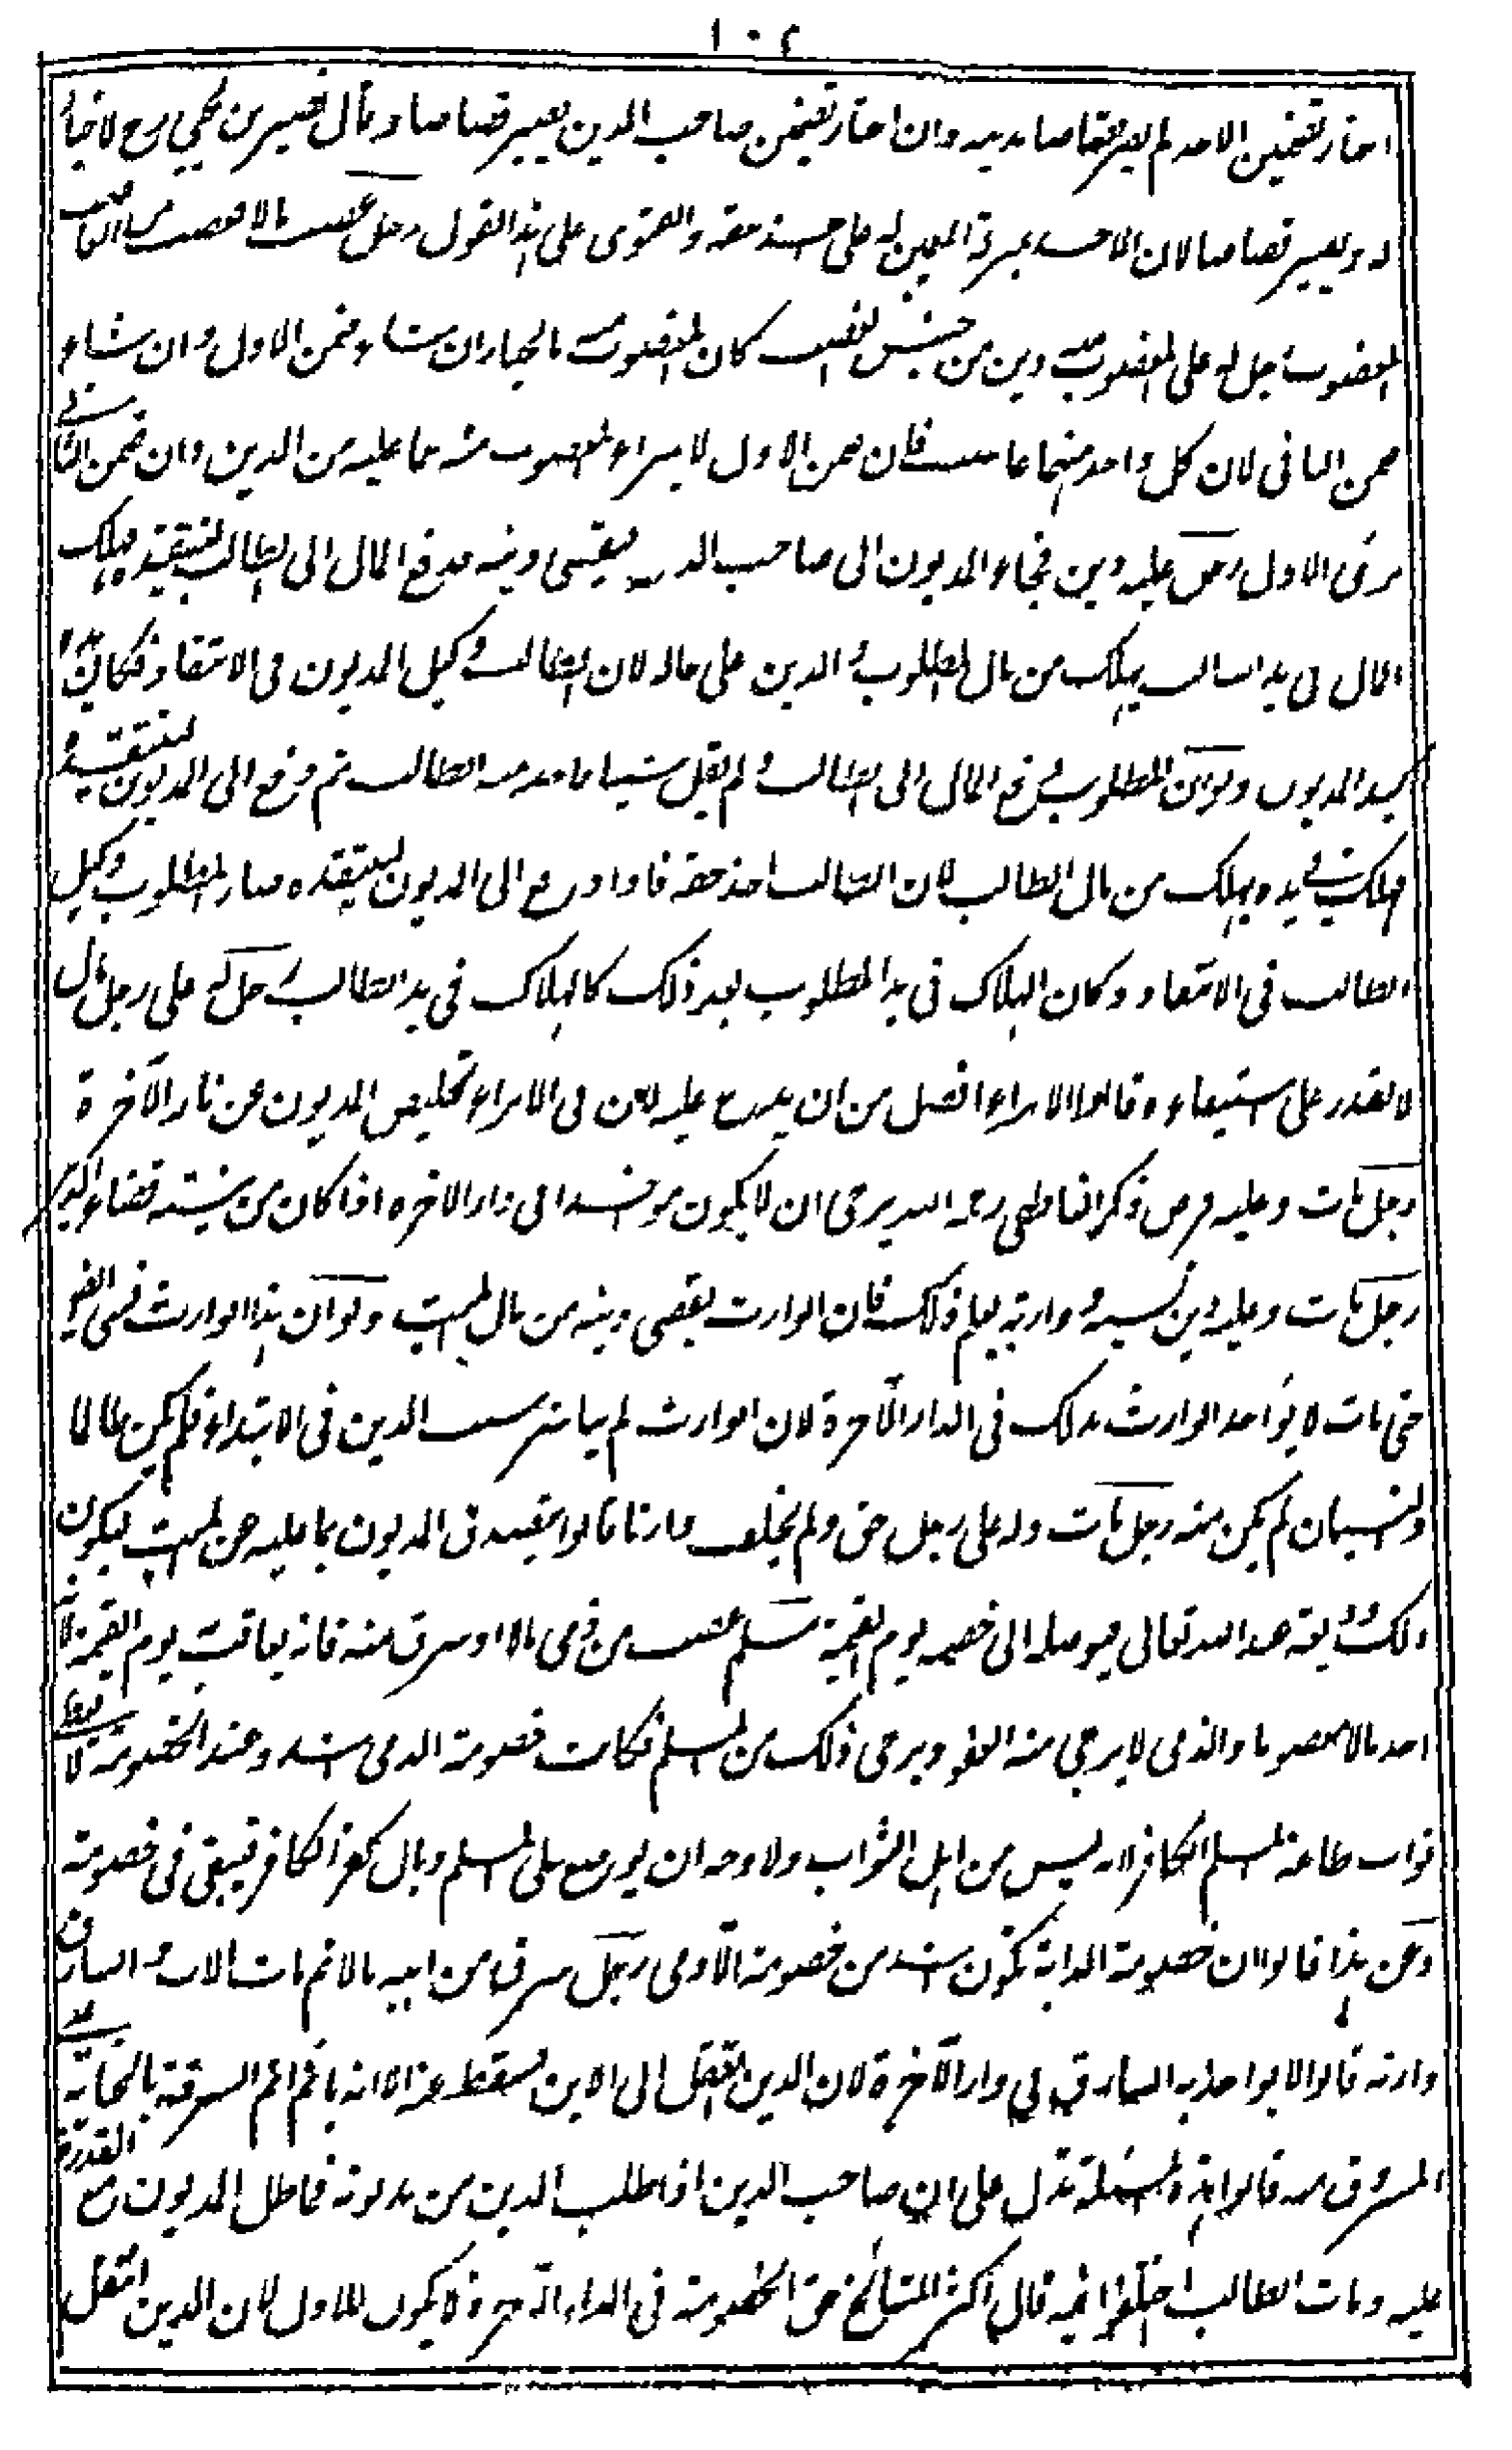 ١٠٢
اختار تضمين الاخذ لم يصر قصاصا بدينه وان اختار تضمين صاحب الدين يصير قصاصا وقال نصير بن يحيى رح لا خيار
له ويصير قصاصا لان الاخذ بمنزلة المعين له على اخذ حقه والفتوى على هذا القول رجل غصب مالا فغصب من الغاصب
المغصوب رجل له على المغصوب منه دين من جنس الغصب كان المغصوب منه بالخيار ان شاء ضمن الاول وان شاء
ضمن الثاني لان كل واحد منهما غاصب فان ضمن الاول لا يبراء المغصوب منه عما عليه من الدين وان ضمن الثاني
برئ الاول رجل عليه دين فجاء المديون الى صاحب الدين ليقضي دينه فدفع المال الى الطالب لينتقده فهلك
المال في يد الطالب يهلك من مال المطلوب والدين على حاله لان الطالب وكيل المديون في الانتقاد فكان يده
كيد المديون ولو ان المطلوب دفع المال الى الطالب ولم يقل شيئا فاخذه الطالب ثم دفع الى المديون لينتقده
فهلك في يده يهلك من مال الطالب لان الطالب اخذ حقه فاذا دفع الى المديون لينتقده صار المطلوب وكيل
الطالب في الانتقاد وكان الهلاك في يد المطلوب بعد ذلك كالهلاك في يد الطالب رجل له على رجل مال
لا يقدر على استيفاءه قالوا الابراء افضل من ان يدع عليه لان في الابراء تخليص المديون عن نار الآخرة
رجل مات وعليه قرض ذكر الناطفي رحمه الله يرجى ان لا يكون مواخذا في دار الاخره اذا كان من نيته قضاء الدين
رجل مات وعليه دين نسيه ووارثه يعلم ذلك فان الوارث يقضي دينه من مال الميت ولو ان هذا الوارث نسي ايضا
حتى مات لا يؤاخذ الوارث بذلك في الدار الآخرة لان الوارث لم يباشر سبب الدين في الابتداء فلم يكن ظالما
والنسيان لم يكن منه رجل مات وله على رجل حق ولم يخلف وارثا قالوا يتصدق المديون بما عليه عن الميت ليكون
ذلك وديعة عند الله تعالى فيوصله الى خصمه يوم القيمة مسلم غصب من ذمى مالا او سرق منه فانه يعاقب يوم القيمة لانه
اخذ مالا معصوما والذمى لا يرجى منه العفو ويرجى ذلك من المسلم فكانت خصومة الذمى اشد وعند الخصومة لا يعطى
ثواب طاعة المسلم الكافر لانه ليس من اهل الثواب ولا وجه ان يوضع على المسلم وبال كفر الكافر فيبقى في خصومة
وعن هذا قالوا ان خصومة الدابة تكون اشد من خصومة الآدمى رجل سرق من ابيه مالا ثم مات الاب والسارق
وارثه قالوا لا يواخذ به السارق في دار الآخرة لان الدين انتقل الى الابن فسقط عنه الا انه يأثم اثم السرقة بالجناية على
المسروق منه قالوا هذه المسئلة تدل على ان صاحب الدين اذا طلب الدين من مديونه فماطل المديون مع القدرة
عليه ومات الطالب اختلفوا فيه قال اكثر المشايخ حق الخصومة في الدار الآخرة لا يكون للاول لان الدين انتقل